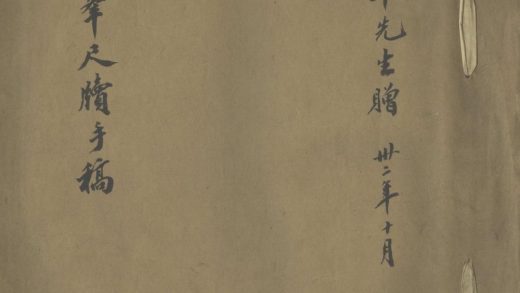 先生贈 卅二年十月
尺牘手稿